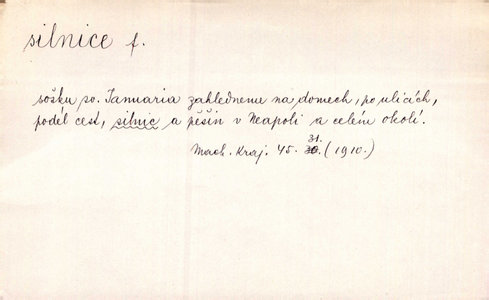 silnice f.
sošku sv. Januaria zahlédneme na domech, po ulicích,
podél cest, silnic a pěšin v Neapoli a celém okolí.
31.
Mach. Kraj. 45. 30. (1910.)